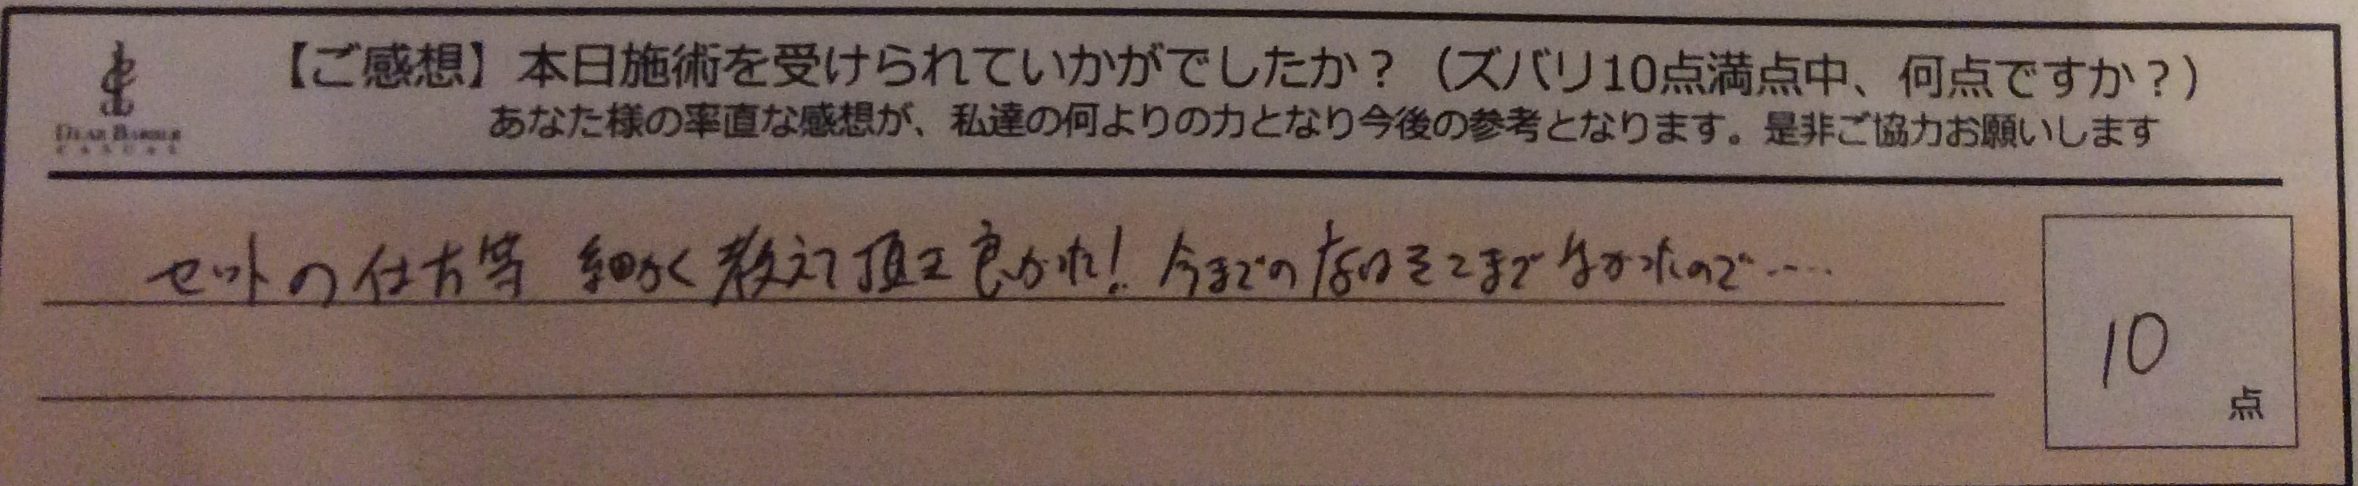 【ご感想】本日施術を受けられていかがでしたか？（ズバリ10点満点中、何点ですか？）
あなた様の率直な感想が、私達の何よりの力となり今後の参考となります。是非ご協力お願いします
DEAR BARBER
セットの仕方等 細かく教えて頂き良かった! 今までの はそこまでなかったので....
10
点